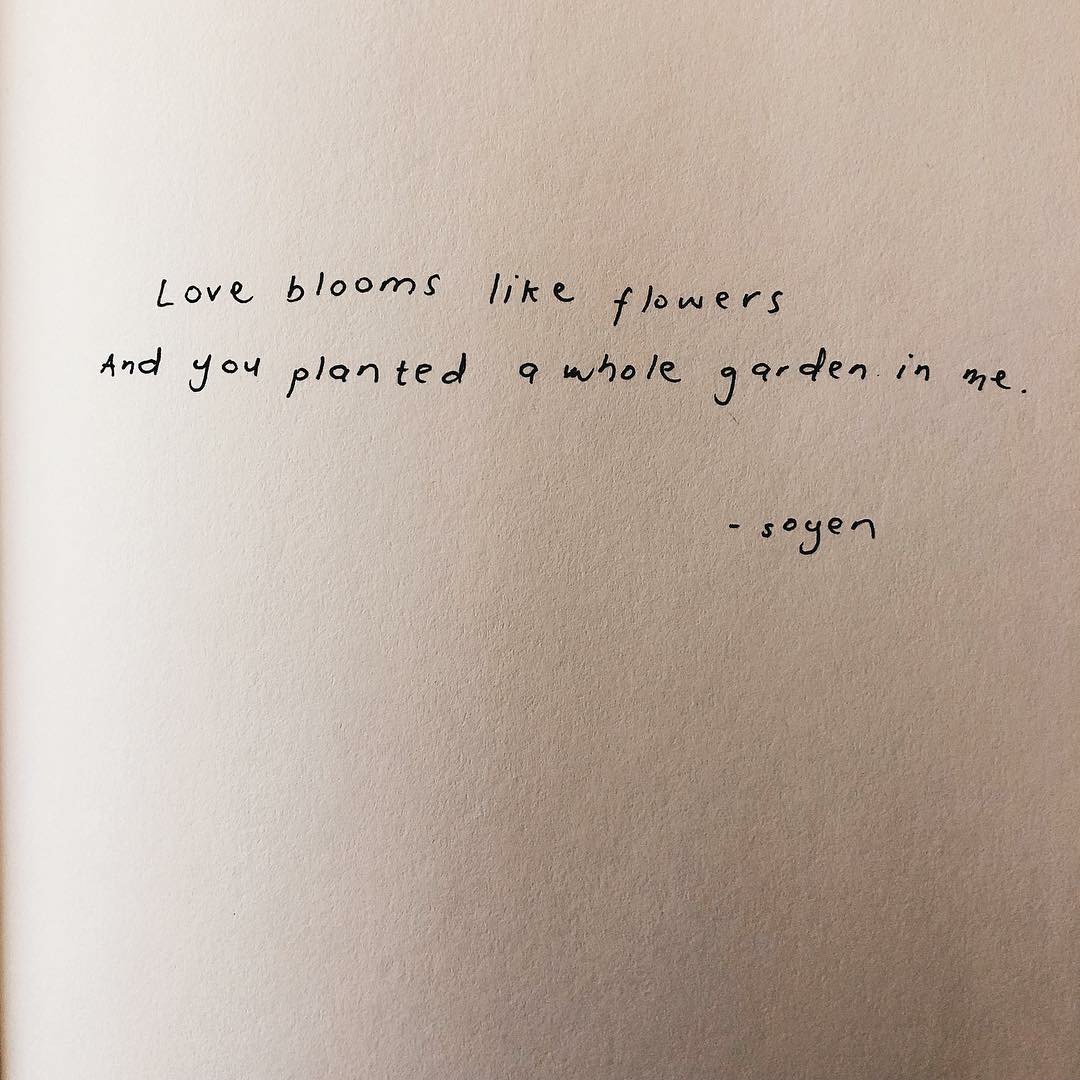 Love blooms like flowers
And you planted a whole garden in me.
- soyen